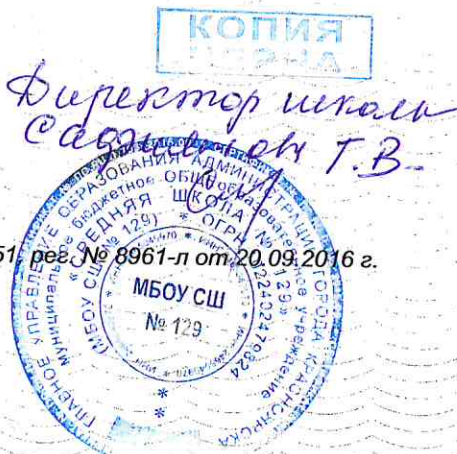 КОПИЯ
ВЕРНА
Директор школы
Т.В.
51, рег. № 8961-л от 20.09.2016 г.
ГЛАВНОЕ УПРАВЛЕНИЕ ОБРАЗОВАНИЯ АДМИНИСТРАЦИИ ГОРОДА КРАСНОЯРСКА
муниципальное бюджетное общеобразовательное учреждение
«СРЕДНЯЯ ШКОЛА № 129»
(МБОУ СШ № 129) * ОГРН
МБОУ СШ
№ 129